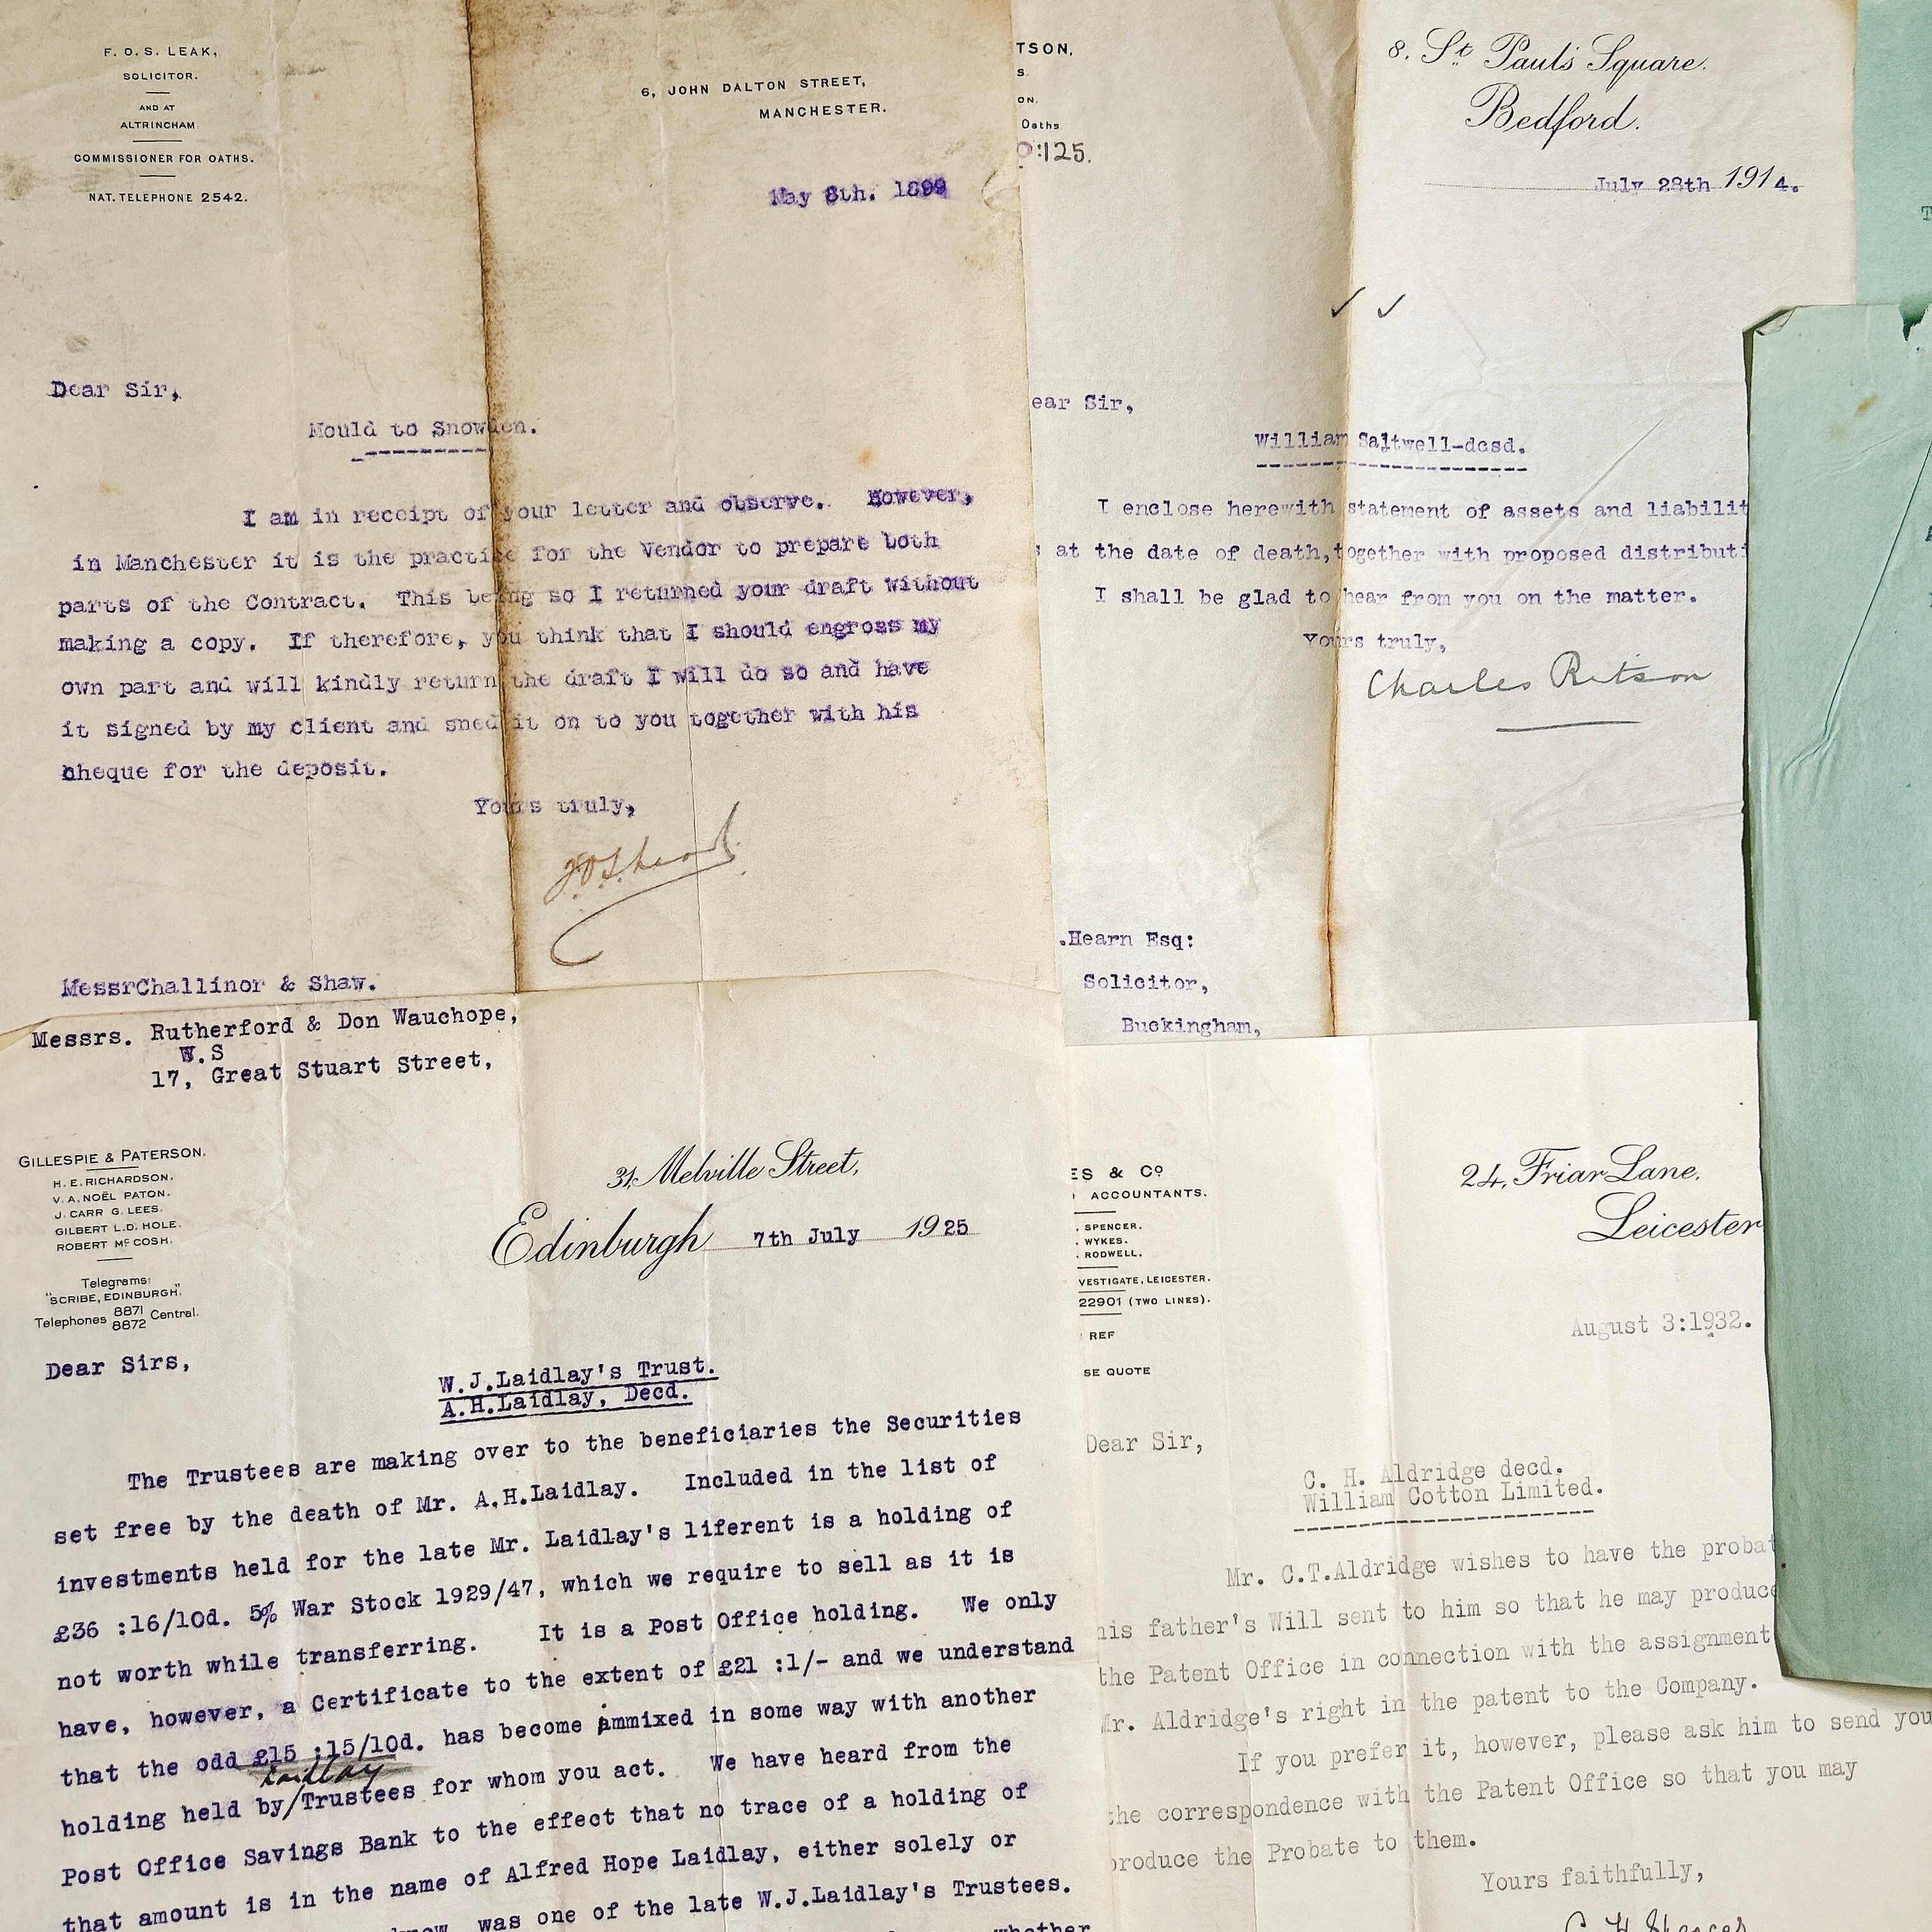 F. O. S. LEAK,
SOLICITOR.
AND AT
ALTRINCHAM
COMMISSIONER FOR OATHS.
NAT. TELEPHONE 2542.
6, JOHN DALTON STREET,
MANCHESTER.
May 8th. 1899
Dear Sir,
Mould to Snowden.
I am in receipt of your letter and observe. However,
in Manchester it is the practice for the Vendor to prepare both
parts of the Contract. This being so I returned your draft without
making a copy. If therefore, you think that I should engross my
own part and will kindly return the draft I will do so and have
it signed by my client and sned it on to you together with his
cheque for the deposit.
Yours truly,
MessrChallinor & Shaw.
TSON,
S.
ON.
Oaths
:125.
8. St. Paul's Square.
Bedford.
July 28th 1914.
ear Sir,
William Saltwell-dcsd.
I enclose herewith statement of assets and liabilit
s at the date of death,together with proposed distributi
I shall be glad to hear from you on the matter.
Yours truly,
Charles Ritson
.Hearn Esq:
Solicitor,
Buckingham,
Messrs. Rutherford & Don Wauchope,
W.S
17, Great Stuart Street,
GILLESPIE & PATERSON.
H. E. RICHARDSON.
V. A. NOËL PATON.
J. CARR G. LEES.
GILBERT L.D. HOLE.
ROBERT McCOSH.
Telegrams:
"SCRIBE, EDINBURGH".
Telephones 8871 8872 Central.
31, Melville Street,
Edinburgh 7th July 1925
Dear Sirs,
W.J.Laidlay's Trust.
A.H.Laidlay, Decd.
The Trustees are making over to the beneficiaries the Securities
set free by the death of Mr. A.H.Laidlay. Included in the list of
investments held for the late Mr. Laidlay's liferent is a holding of
£36 :16/10d. 5% War Stock 1929/47, which we require to sell as it is
not worth while transferring. It is a Post Office holding. We only
have, however, a Certificate to the extent of £21 :1/- and we understand
that the odd £15 :15/10d. has become immixed in some way with another
Laidlay
holding held by/Trustees for whom you act. We have heard from the
Post Office Savings Bank to the effect that no trace of a holding of
that amount is in the name of Alfred Hope Laidlay, either solely or
know, was one of the late W.J.Laidlay's Trustees.
whether
ES & Co
ACCOUNTANTS.
. SPENCER.
. WYKES.
. RODWELL.
VESTIGATE, LEICESTER.
22901 (TWO LINES).
REF
SE QUOTE
24, Friar Lane,
Leicester
August 3:1932.
Dear Sir,
C. H. Aldridge decd.
William Cotton Limited.
Mr. C.T.Aldridge wishes to have the probat
his father's Will sent to him so that he may produce
the Patent Office in connection with the assignment
Mr. Aldridge's right in the patent to the Company.
If you prefer it, however, please ask him to send you
the correspondence with the Patent Office so that you may
produce the Probate to them.
Yours faithfully,